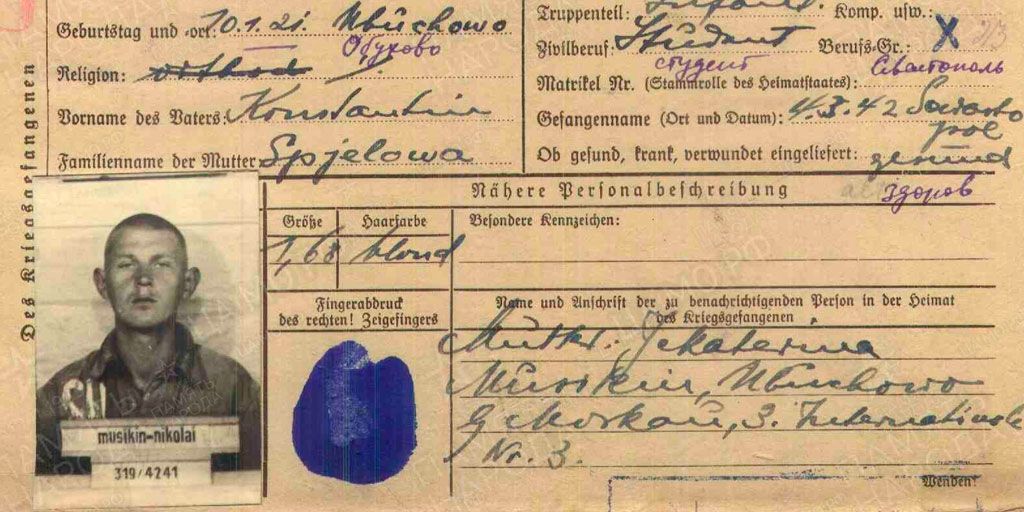 Geburtstag und -ort: 10.1.21. Ubuchowo
Обухово
Religion: orthod
Vorname des Vaters: Konstantin
Familienname der Mutter: Spjelowa
Truppenteil: Komp. usw.:
Zivilberuf: Student Berufs-Gr.: X
студент Севастополь
Matrikel Nr. (Stammrolle des Heimatstaates):
Gefangennahme (Ort und Datum): 4.3.42 Sewasto
pol
Ob gesund, krank, verwundet eingeliefert: gesund
здоров
Des Kriegsgefangenen
Nähere Personalbeschreibung
Größe Haarfarbe Besondere Kennzeichen:
1,68 blond
Fingerabdruck
des rechten! Zeigefingers
Name und Anschrift der zu benachrichtigenden Person in der Heimat
des Kriegsgefangenen
Mutter: Jekaterina
Musikin, Ubuchowo
G Moskau, 3. Internationale
Nr. 3.
musikin-nikolai
319/4241
Wenden!